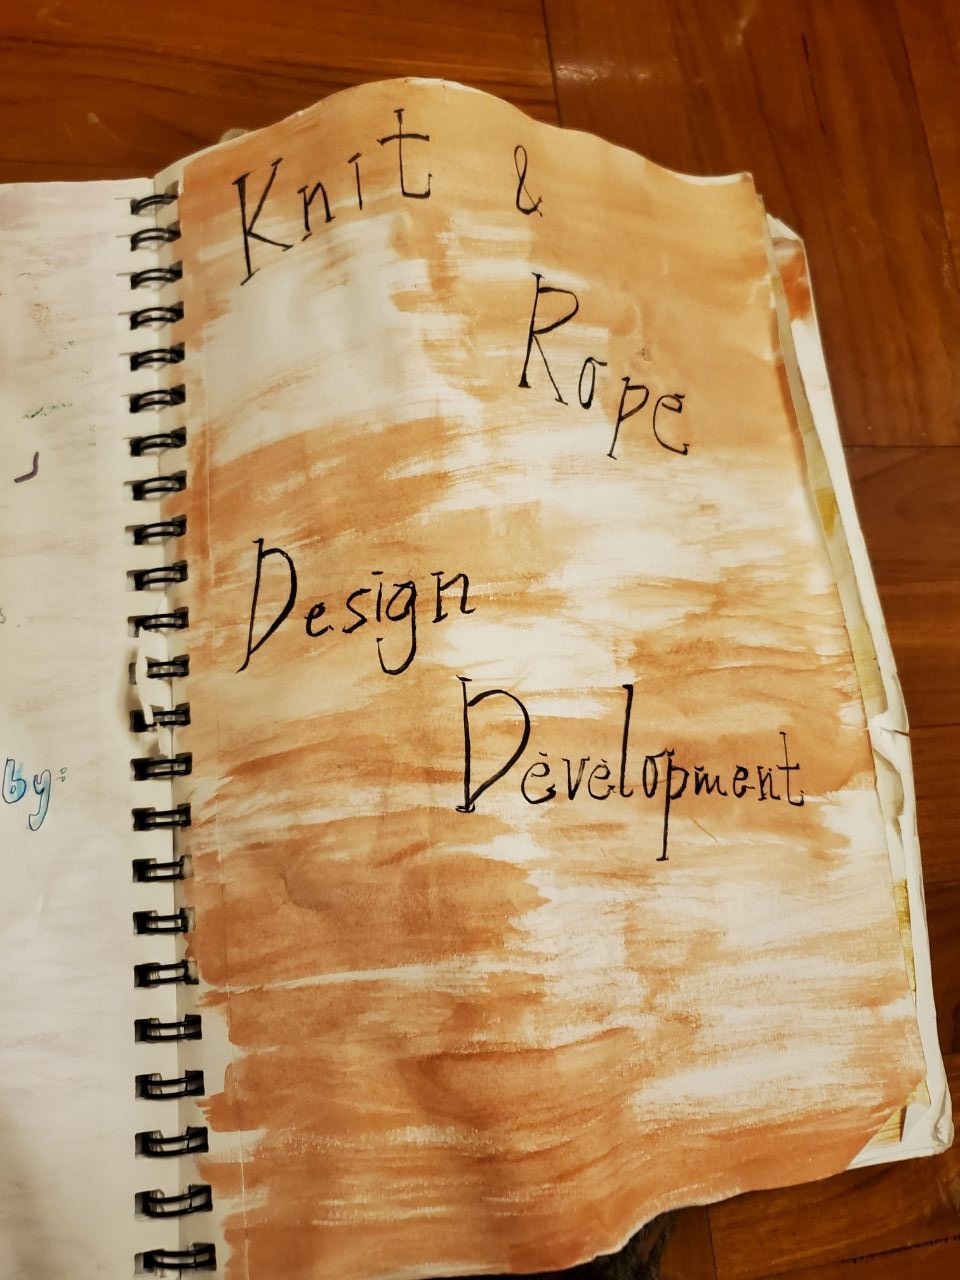 Knit &
Rope
Design
Development
by: